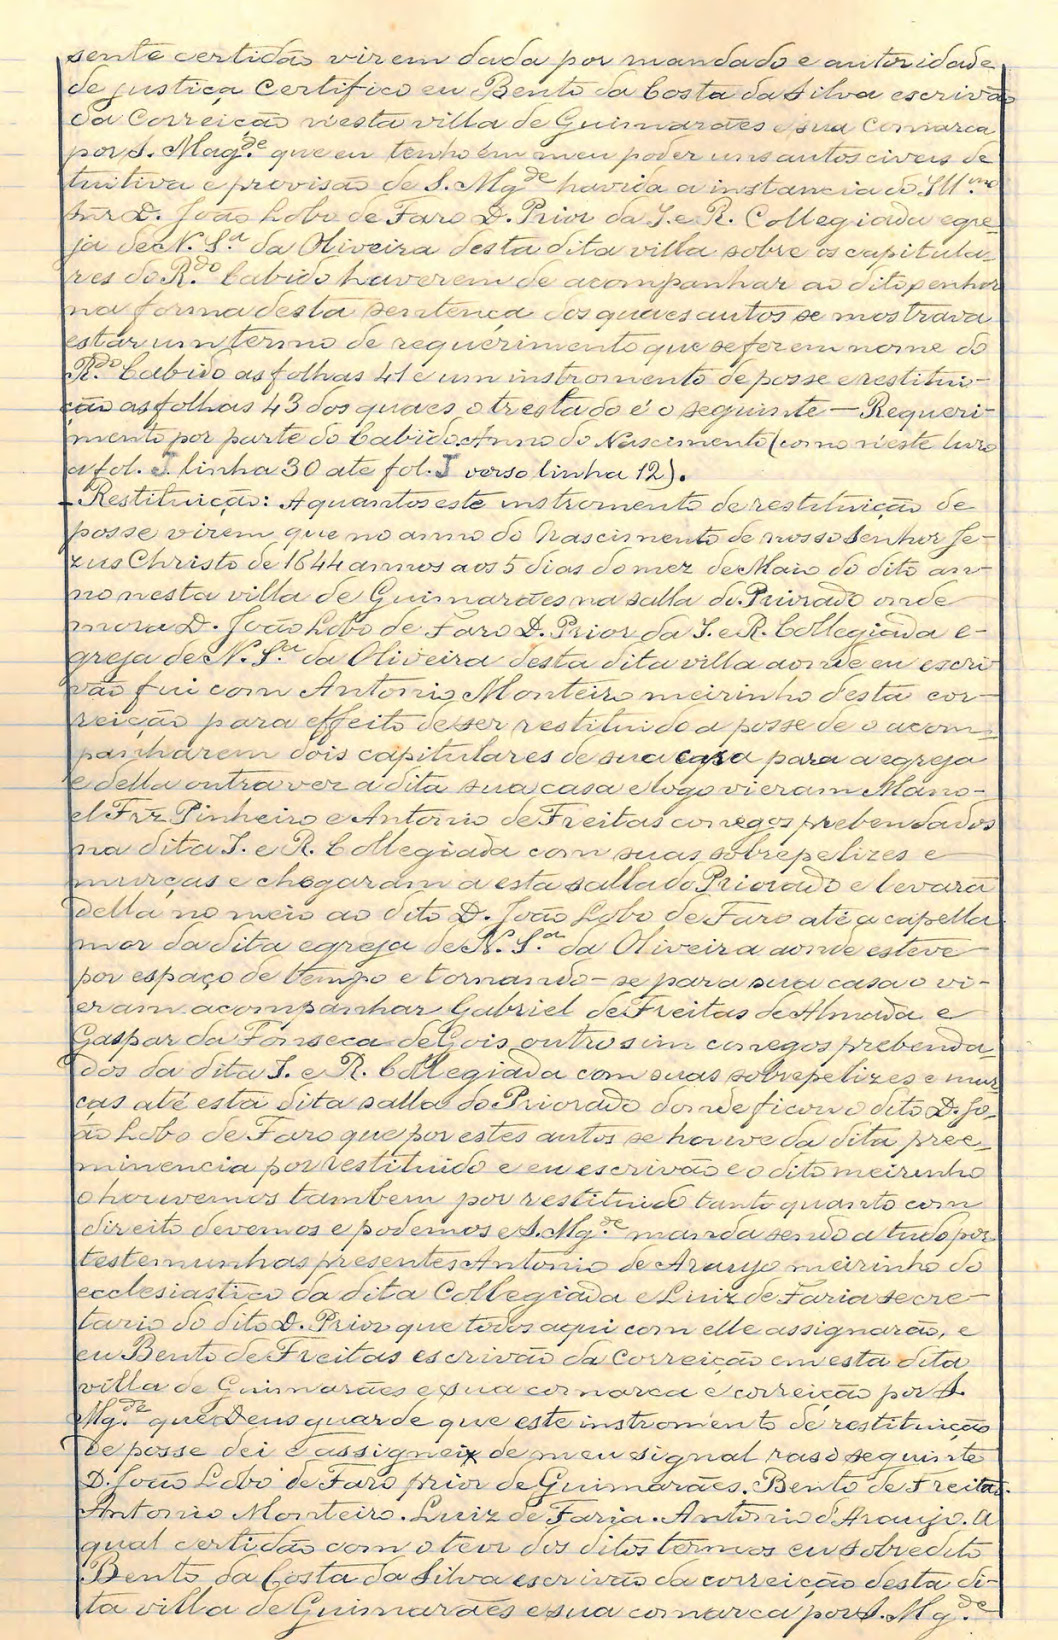 sente certidão virem dada por mandado e autoridade
de justiça Certifico eu Bento da Costa da Silva escrivão
da Correição n'esta villa de Guimarães e sua Comarca
por S. Mag.de que eu tenho em meu poder uns autos civeis de
tuitiva e provisão de S. Mg.de havida a instancia do Ill.mo
Snr D. João Lobo de Faro D. Prior da I. e R. Collegiada egre-
ja de N. S.ra da Oliveira desta dita villa sobre os capitula-
res do R.do Cabido haverem de acompanhar ao dito senhor
na forma desta sentença dos quaes autos se mostrava
estar um termo de requerimento que se fez em nome do
R.do Cabido as folhas 41 e um instromento de posse e restitui-
ção as folhas 43 dos quaes o treslado é o seguinte — Requeri-
mento por parte do Cabido Anno do Nascimento (como n'este livro
a fol. I linha 30 ate fol. I verso linha 12).
- Restituição: A quantos este instromento de restituição de
posse virem que no anno do Nascimento de nosso Senhor Je-
zus Christo de 1644 annos aos 5 dias do mez de Maio do dito an-
no nesta villa de Guimarães na salla do Priorado onde
mora D. João Lobo de Faro D. Prior da I. e R. Collegiada e-
greja de N. S.ra da Oliveira desta dita villa aonde eu escri-
vão fui com Antonio Monteiro meirinho desta cor-
reição para effeito de ser restituido a posse de o acom-
panharem dois capitulares de sua casa para a egreja
e della outra vez a dita sua casa e logo vieram Mano-
el Frz Pinheiro e Antonio de Freitas conegos prebendados
na dita I. e R. Collegiada com suas sobrepelizes e
murças e chegaram a esta salla do Priorado e levarã
della no meio ao dito D. João Lobo de Faro até a capella
mor da dita egreja de N. S.ra da Oliveira aonde esteve
por espaço de tempo e tornando-se para sua casa o vi-
eram acompanhar Gabriel de Freitas de Almada e
Gaspar da Fonseca de Gois outro sim conegos prebenda-
dos da dita I. e R. Collegiada com suas sobrepelizes e mur-
ças até esta dita salla do Priorado donde ficou o dito D. Jo-
ão Lobo de Faro que por estes autos se houve da dita pree-
minencia por restituido e eu escrivão e o dito meirinho
o houvemos tambem por restituido tanto quanto com
direito devemos e podemos e S. Mg.de manda sendo a tudo por
testemunhas presentes Antonio de Araujo meirinho do
ecclesiastico da dita Collegiada e Luiz de Faria secre-
tario do dito D. Prior que todos aqui com elle assignarão, e
eu Bento de Freitas escrivão da Correição em esta dita
villa de Guimarães e sua comarca e correição por S.
Mg.de que Deus guarde que este instromento de restituição
de posse dei e assignei de meu signal raso seguinte
D. João Lobo de Faro prior de Guimarães. Bento de Freitas.
Antonio Monteiro. Luiz de Faria. Antonio d'Araujo. A
qual certidão com o teor dos ditos termos eu sobredito
Bento da Costa da Silva escrivão da correição desta di-
ta villa de Guimarães e sua comarca por S. Mg.de